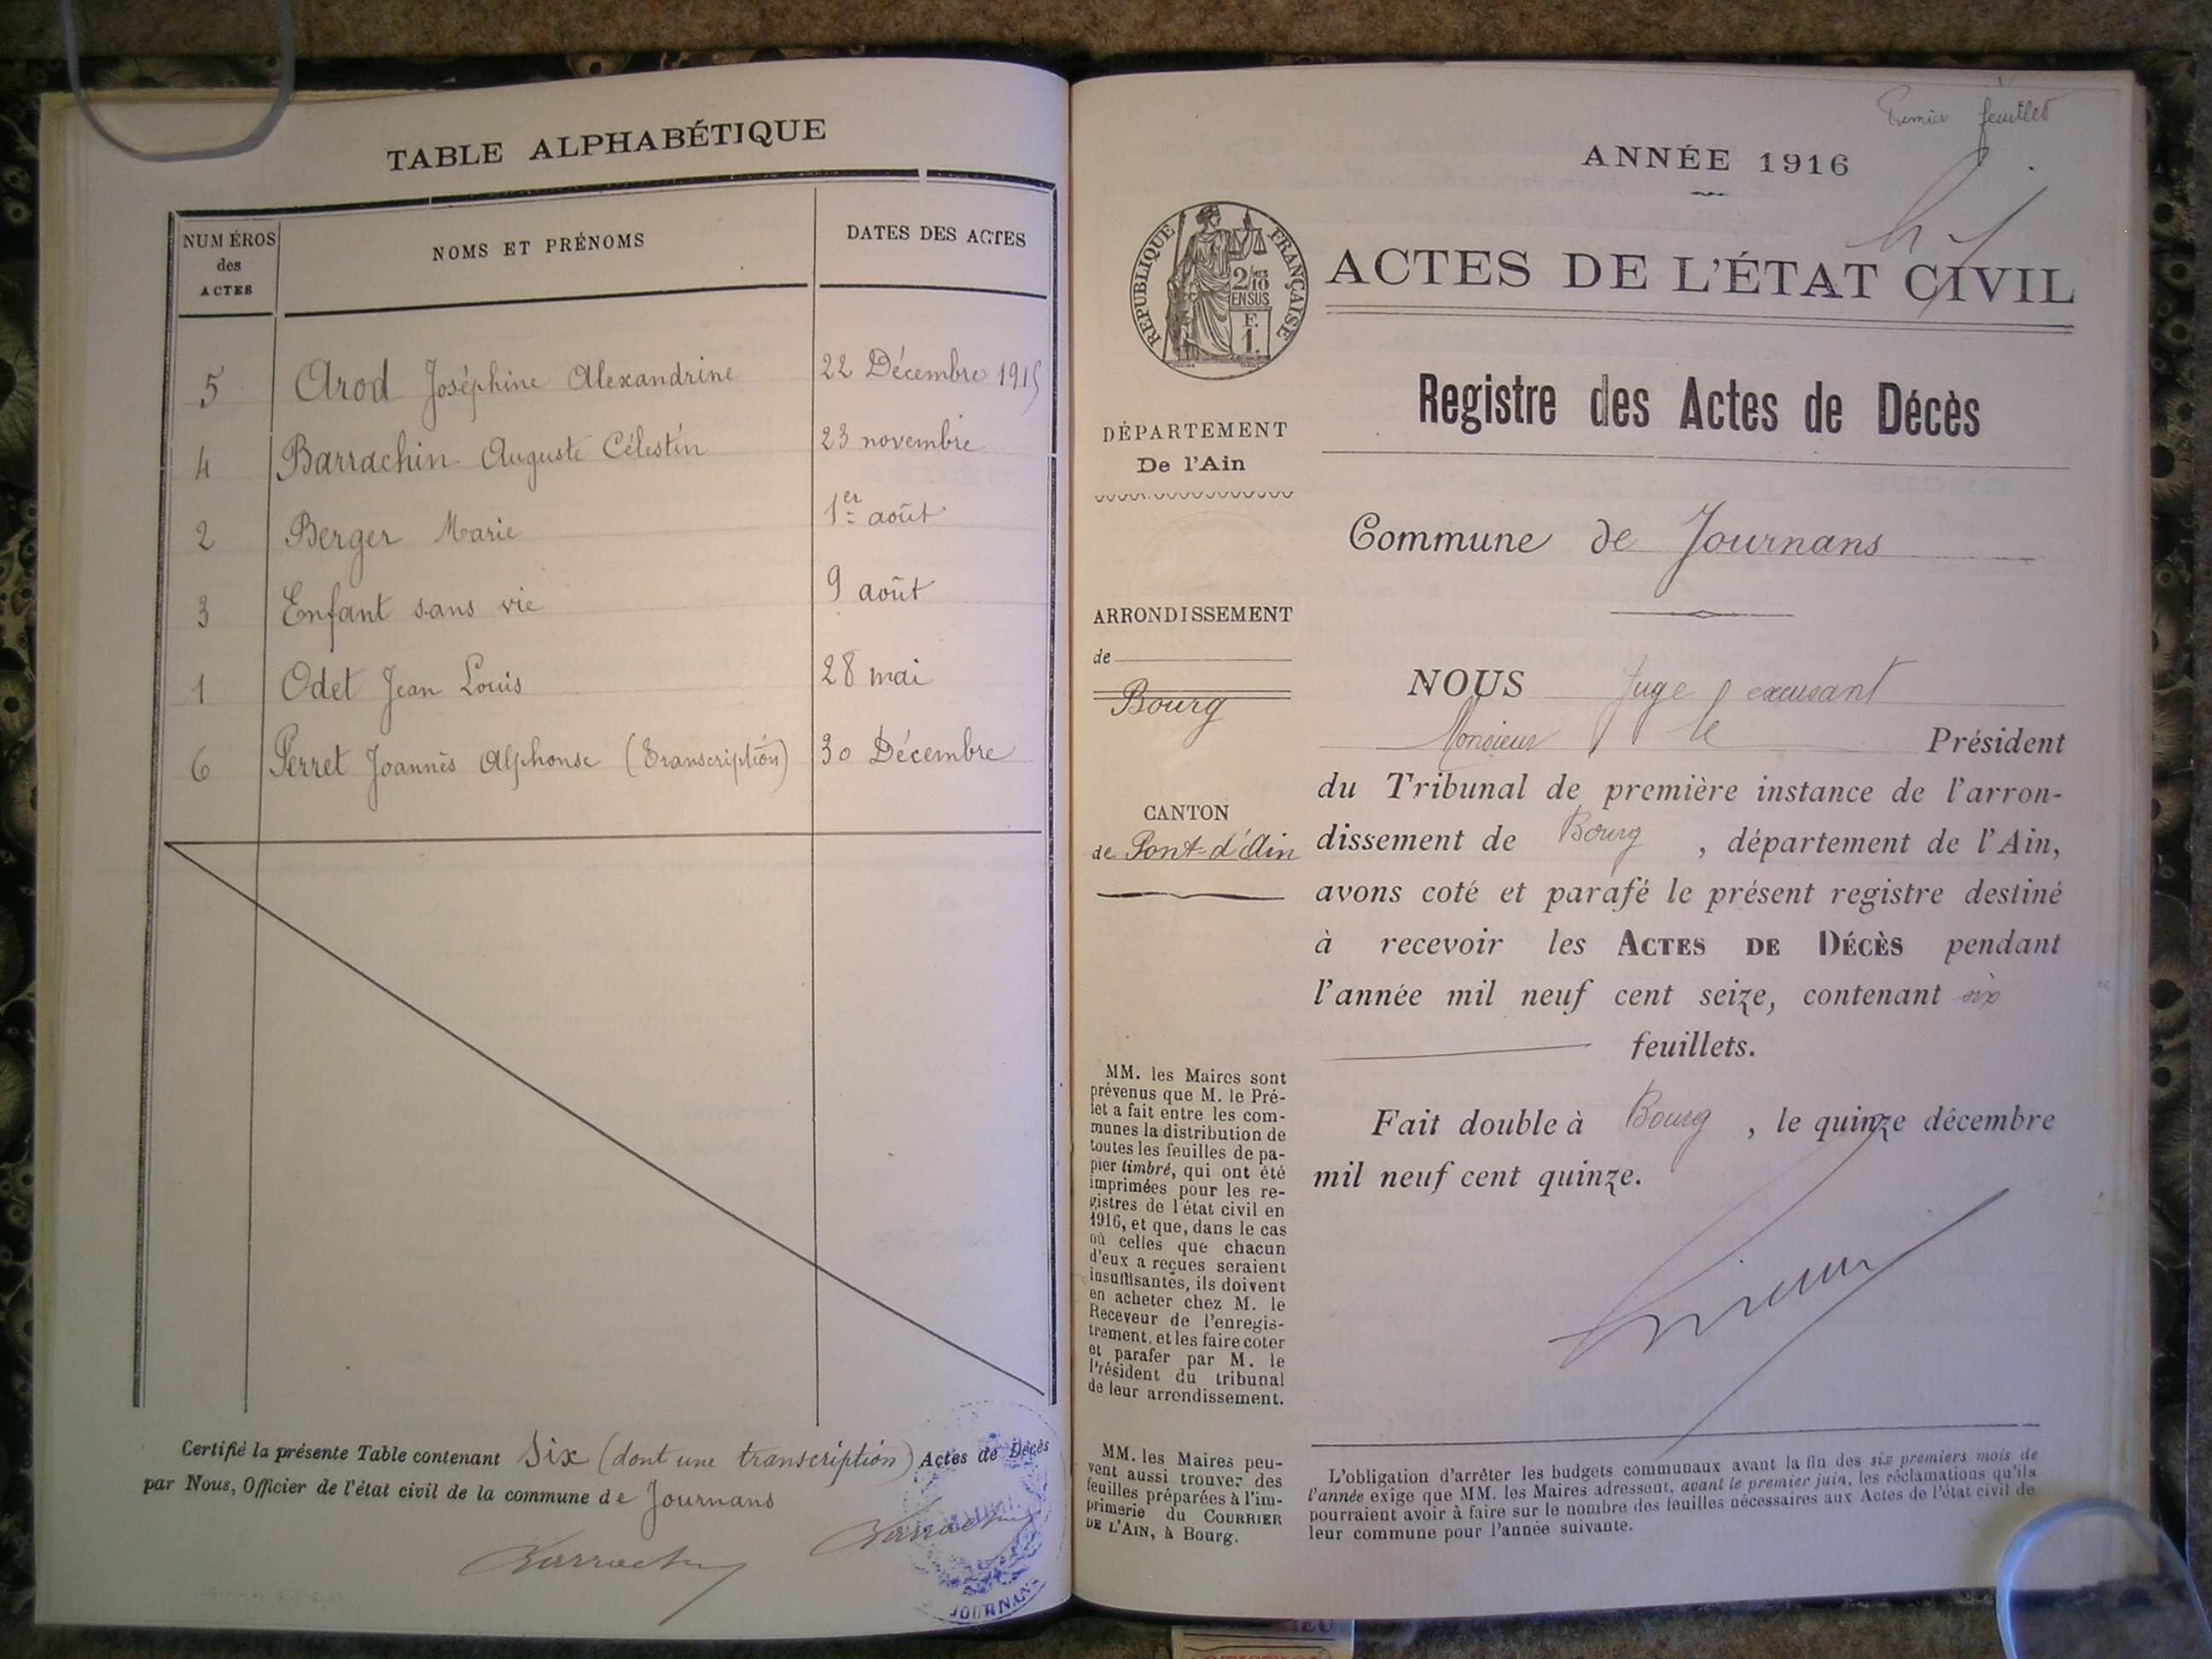 TABLE ALPHABÉTIQUE
NUMÉROS des ACTES NOMS ET PRÉNOMS DATES DES ACTES
5 Arod Joséphine Alexandrine 22 Décembre 1915
4 Barrachin Auguste Célestin 23 novembre
2 Berger Marie 1er août
3 Enfant sans vie 9 août
1 Odet Jean Louis 28 mai
6 Perret Joannès Alphonse (Transcription) 30 Décembre
Certifié la présente Table contenant Six (dont une transcription) Actes de Décès
par Nous, Officier de l'état civil de la commune de Journans
JOURNANS
Premier feuillet
ANNÉE 1916
RÉPUBLIQUE FRANÇAISE
2/10 MES
EN SUS
F.
1.
ACTES DE L'ÉTAT CIVIL
Registre des Actes de Décès
DÉPARTEMENT
De l'Ain
Commune de Journans
ARRONDISSEMENT
de
Bourg
CANTON
de Pont-d'Ain
MM. les Maires sont
prévenus que M. le Pré-
fet a fait entre les com-
munes la distribution de
toutes les feuilles de pa-
pier timbré, qui ont été
imprimées pour les re-
gistres de l'état civil en
1916, et que, dans le cas
où celles que chacun
d'eux a reçues seraient
insuffisantes, ils doivent
en acheter chez M. le
Receveur de l'enregis-
trement, et les faire coter
et parafer par M. le
Président du tribunal
de leur arrondissement.
MM. les Maires peu-
vent aussi trouver des
feuilles préparées à l'im-
primerie du COURRIER
DE L'AIN, à Bourg.
NOUS Juge excusant
Monsieur le Président
du Tribunal de première instance de l'arron-
dissement de Bourg, département de l'Ain,
avons coté et parafé le présent registre destiné
à recevoir les ACTES DE DÉCÈS pendant
l'année mil neuf cent seize, contenant six
feuillets.
Fait double à Bourg, le quinze décembre
mil neuf cent quinze.
L'obligation d'arrêter les budgets communaux avant la fin des six premiers mois de
l'année exige que MM. les Maires adressent, avant le premier juin, les réclamations qu'ils
pourraient avoir à faire sur le nombre des feuilles nécessaires aux Actes de l'état civil de
leur commune pour l'année suivante.